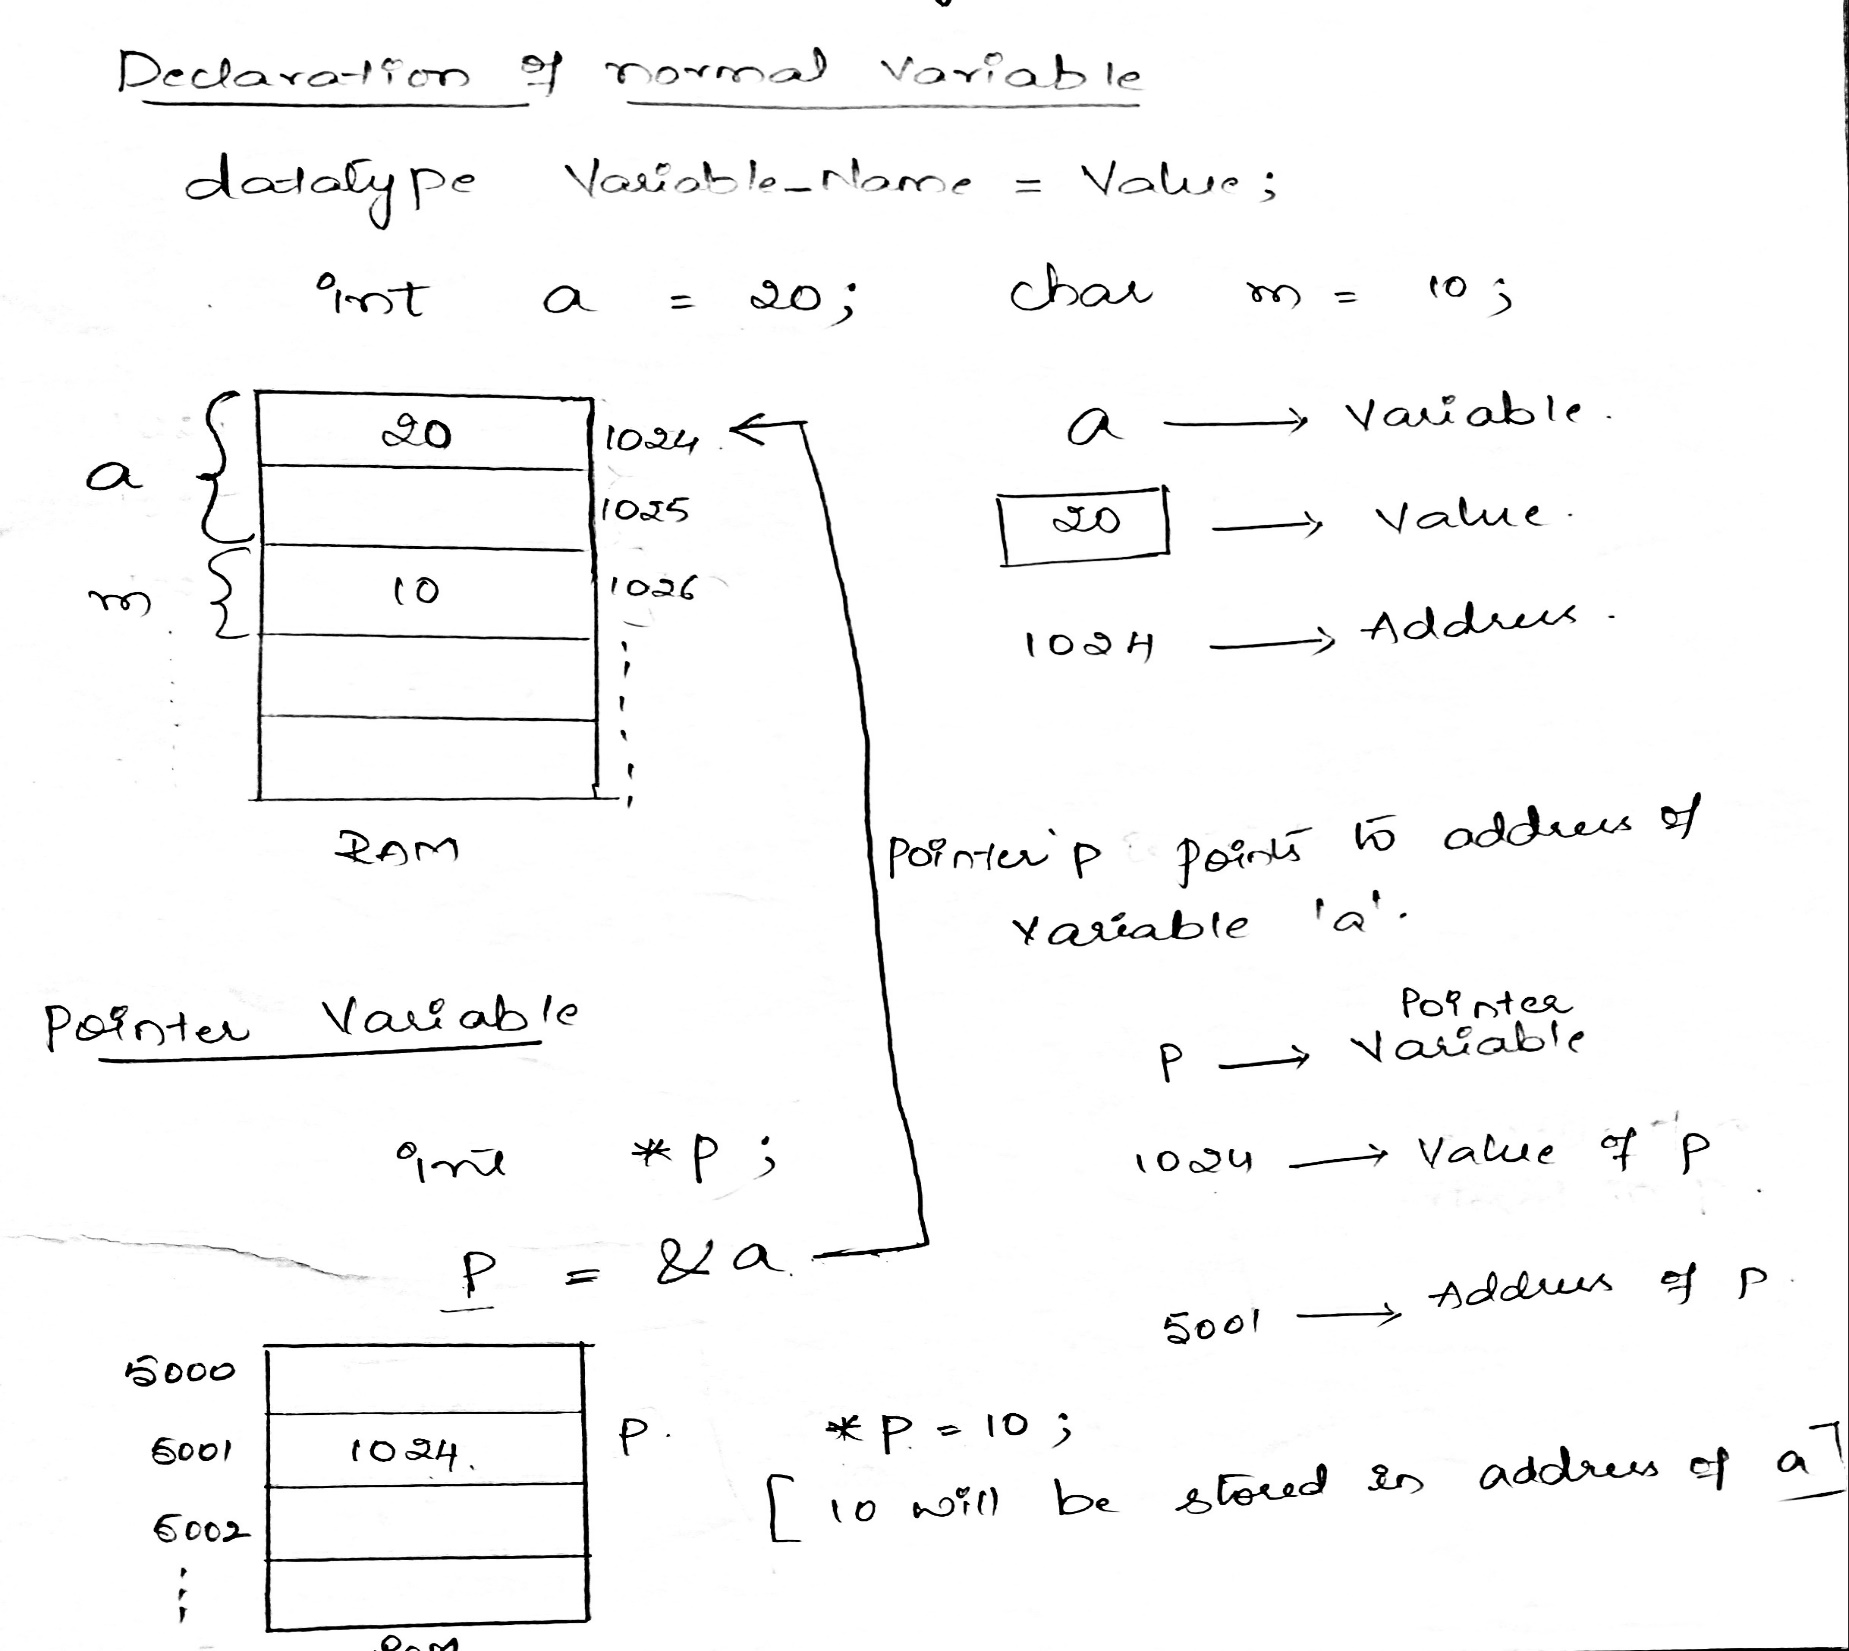 Declaration of normal variable
datatype Variable_Name = Value;
int a = 20; char m = 10;
a
20
1024
1025
m
10
1026
RAM
a → Variable.
20 → Value.
1024 → Address.
Pointer 'p' points to address of
variable 'a'.
Pointer Variable
int *p;
p = &a
p → Pointer Variable
1024 → Value of p
5001 → Address of p.
5000
5001
1024.
p.
5002
RAM
*p = 10;
[10 will be stored in address of a]